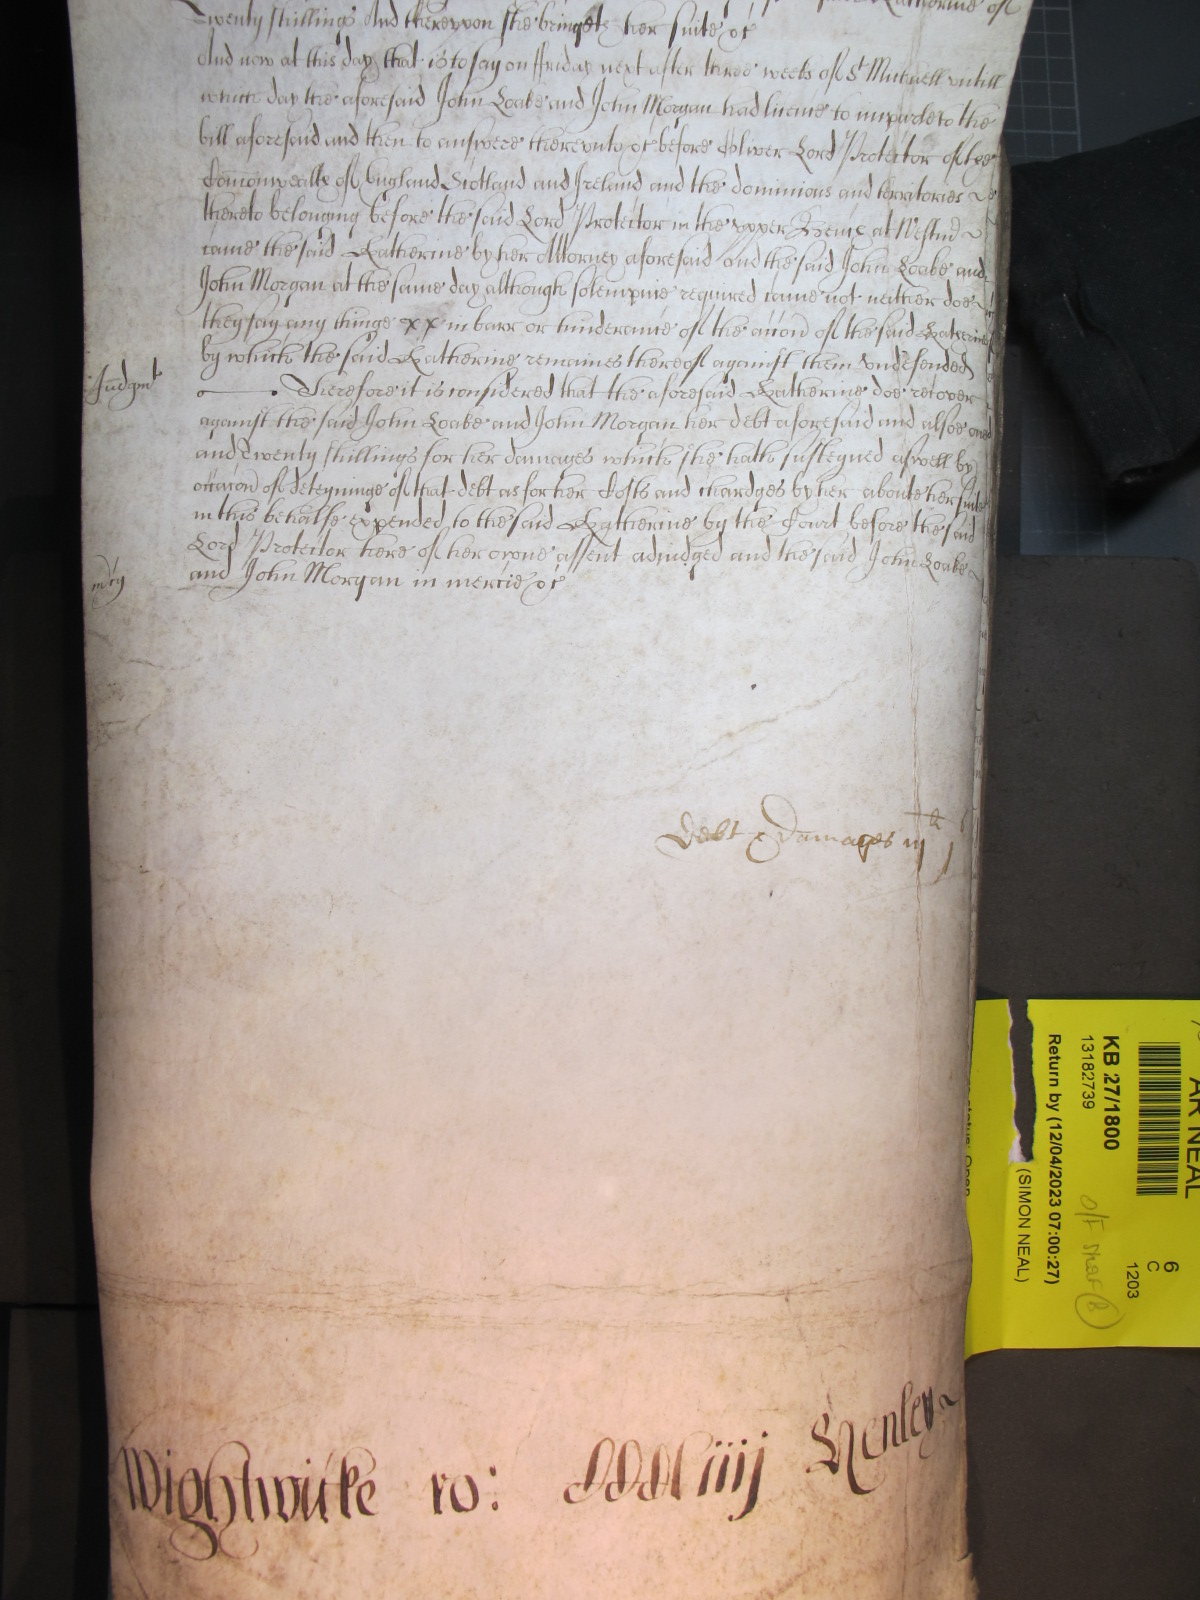 Katherine of
Twenty shillings And thereupon she bringeth her suite &c
And now at this day that is to say on ffriday next after three weeks of St Michaell untill
which day the aforesaid John Loake and John Morgan had licence to imparle to the
bill aforesaid and then to answere thereunto &c before Oliver Lord Protector of the
Comonwealth of England Scotland and Ireland and the dominions and territories
thereto belonging before the said Lord Protector in the upper Bench at Westmr
came the said Katherine by her Attorney aforesaid and the said John Loake and
John Morgan at the same day although solempnie required came not neither doe
they say any thinge xx in barr or hinderance of the accon of the said Katherine
by which the said Katherine remaines thereof against them undefended
Judgmt
Therefore it is considered that the aforesaid Katherine doe recover
against the said John Loake and John Morgan her debt aforesaid and alsoe one
and Twenty shillings for her damages which she hath susteyned aswell by
occacon of deteyninge of that debt as for her Costs and chardges by her aboute her suite
in this behalfe expended to the said Katherine by the Court before the said
Lord Protector here of her owne assent adjudged and the said John Loake
mcy
and John Morgan in mercie &c
Debt & Damages
Wightwicke ro: Henley
AR NEAL
6
C
1203
KB 27/1800
13182739
Return by (12/04/2023 07:00:27)
(SIMON NEAL)